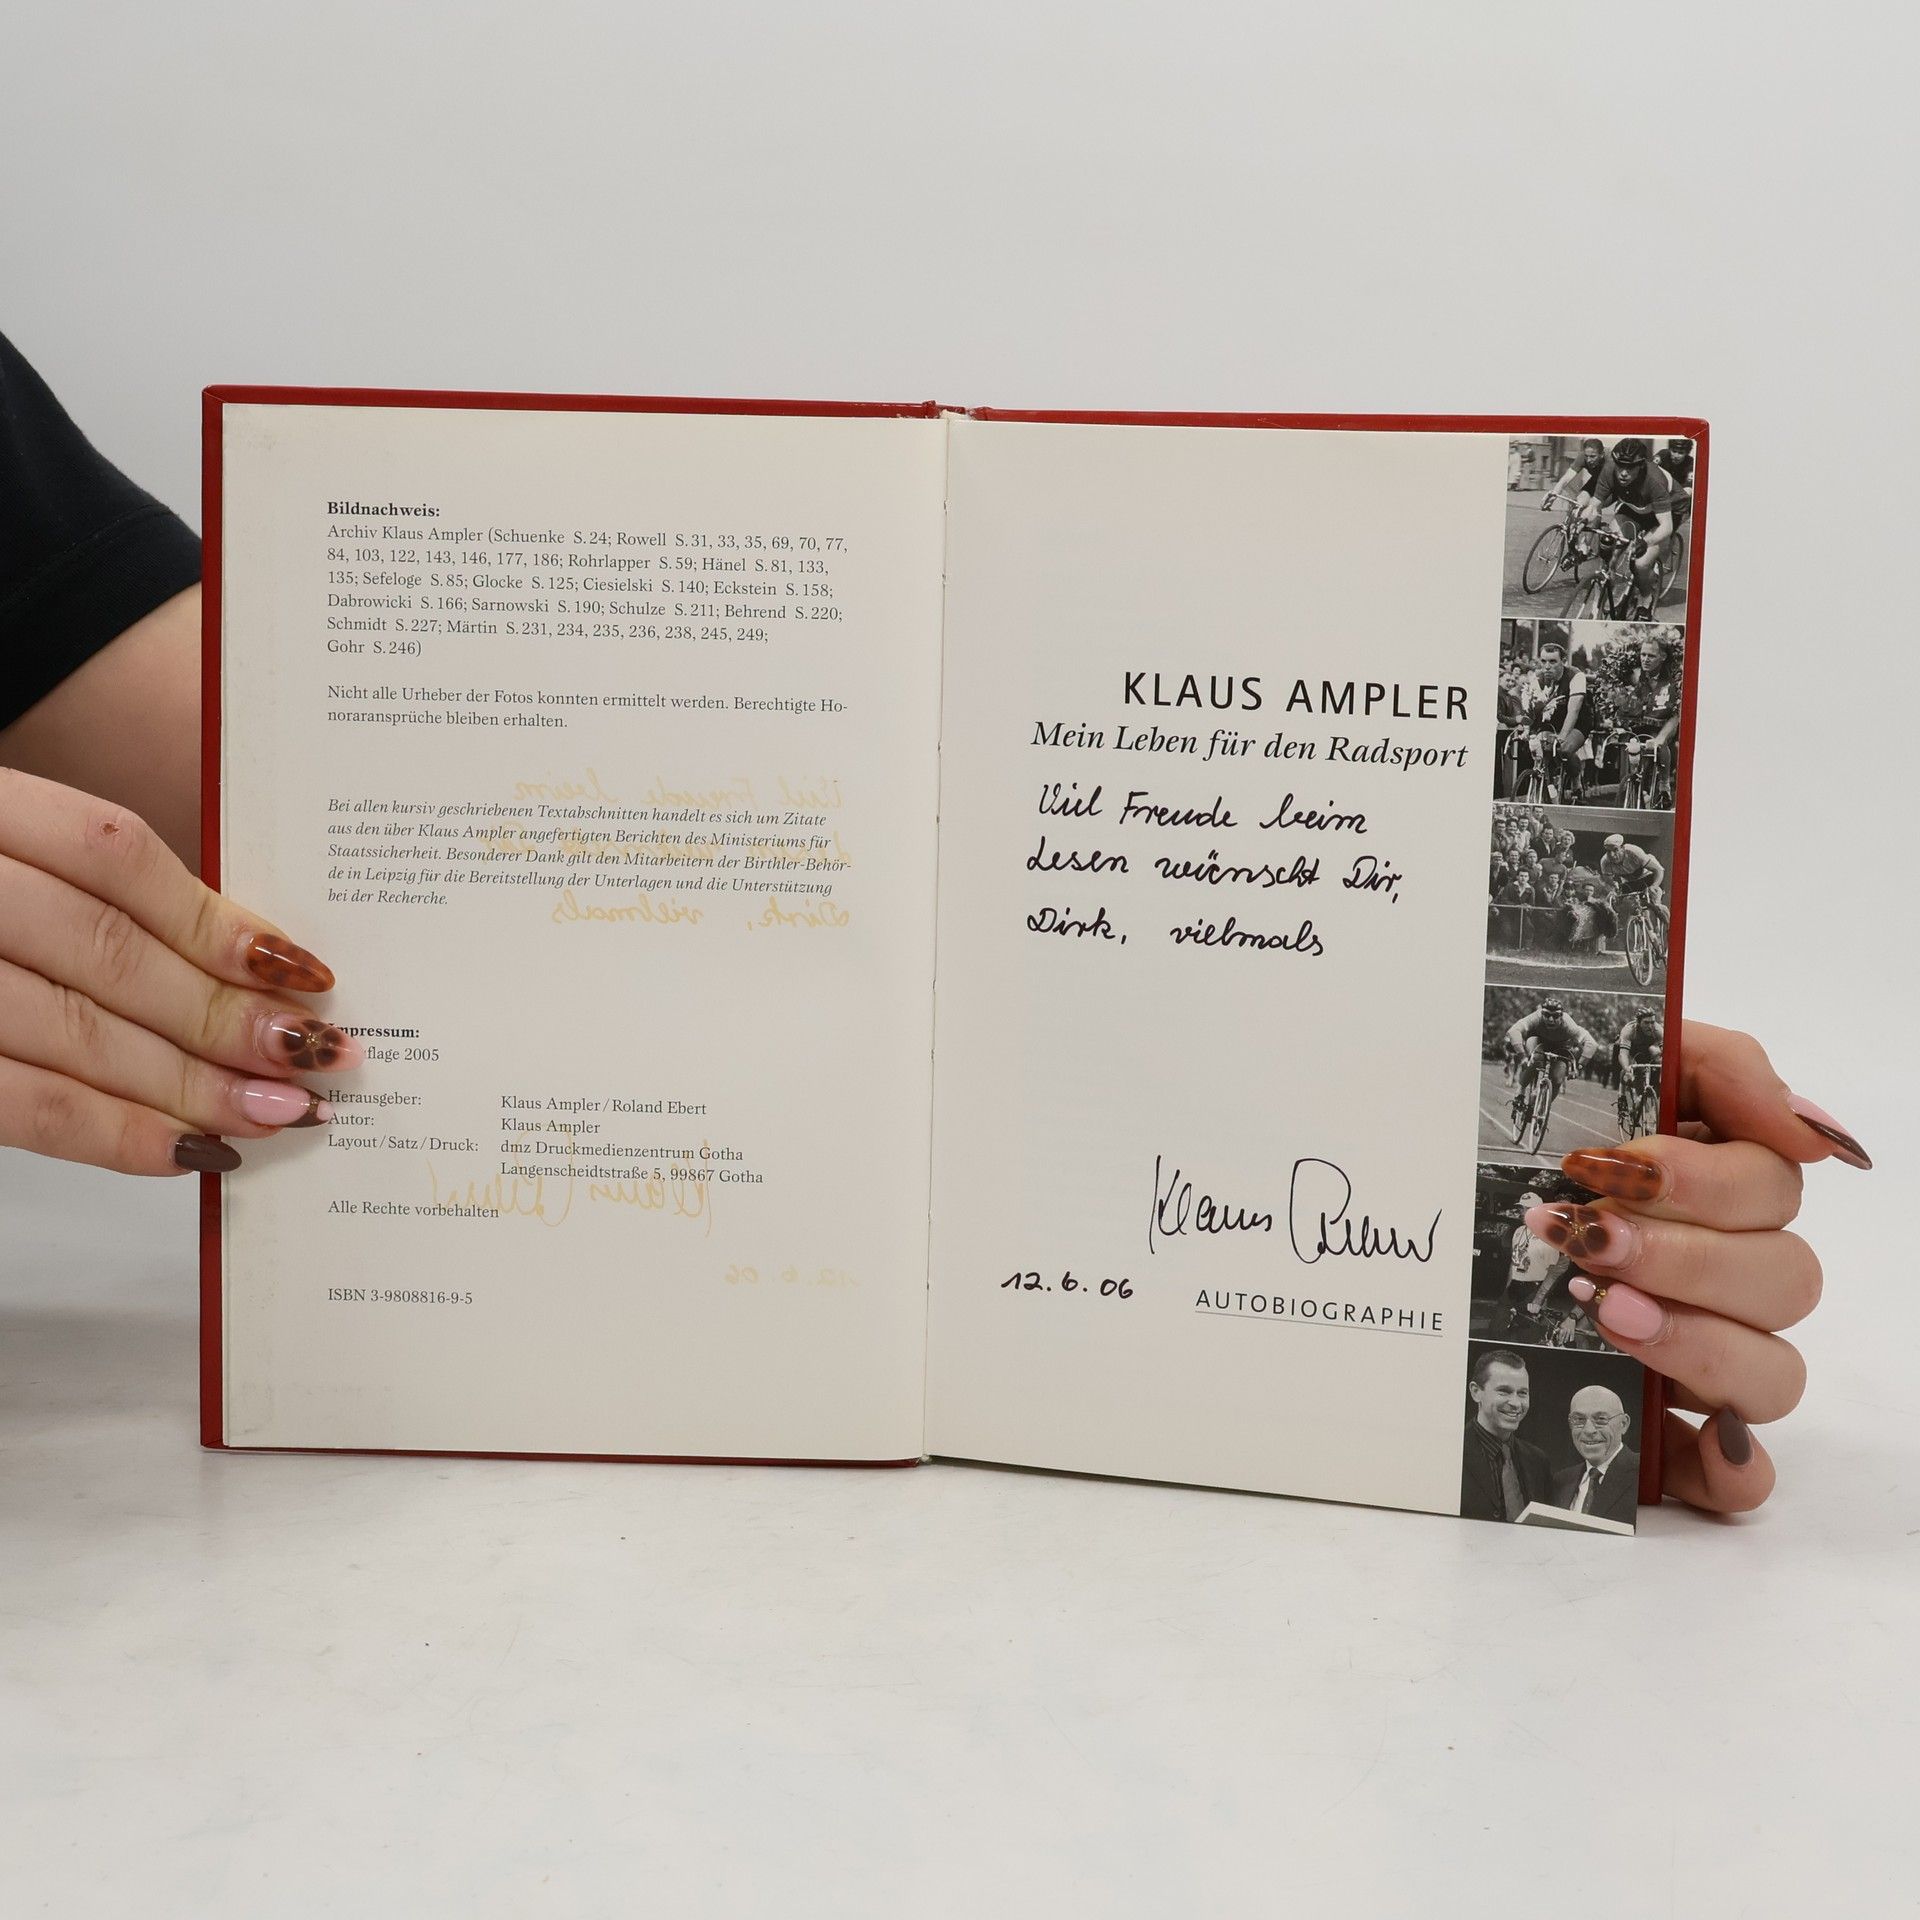 Bildnachweis:
Archiv Klaus Ampler (Schuenke S. 24; Rowell S. 31, 33, 35, 69, 70, 77,
84, 103, 122, 143, 146, 177, 186; Rohrlapper S. 59; Hänel S. 81, 133,
135; Sefeloge S. 85; Glocke S. 125; Ciesielski S. 140; Eckstein S. 158;
Dabrowicki S. 166; Sarnowski S. 190; Schulze S. 211; Behrend S. 220;
Schmidt S. 227; Märtin S. 231, 234, 235, 236, 238, 245, 249;
Gohr S. 246)
Nicht alle Urheber der Fotos konnten ermittelt werden. Berechtigte Ho-
noraransprüche bleiben erhalten.
Bei allen kursiv geschriebenen Textabschnitten handelt es sich um Zitate
aus den über Klaus Ampler angefertigten Berichten des Ministeriums für
Staatssicherheit. Besonderer Dank gilt den Mitarbeitern der Birthler-Behör-
de in Leipzig für die Bereitstellung der Unterlagen und die Unterstützung
bei der Recherche.
mpressum:
flage 2005
Herausgeber: Klaus Ampler / Roland Ebert
Autor: Klaus Ampler
Layout / Satz / Druck: dmz Druckmedienzentrum Gotha
Langenscheidtstraße 5, 99867 Gotha
Alle Rechte vorbehalten
ISBN 3-9808816-9-5
KLAUS AMPLER
Mein Leben für den Radsport
Viel Freude beim
Lesen wünscht Dir,
Dirk, vielmals
Klaus Ampler
12. 6. 06
AUTOBIOGRAPHIE